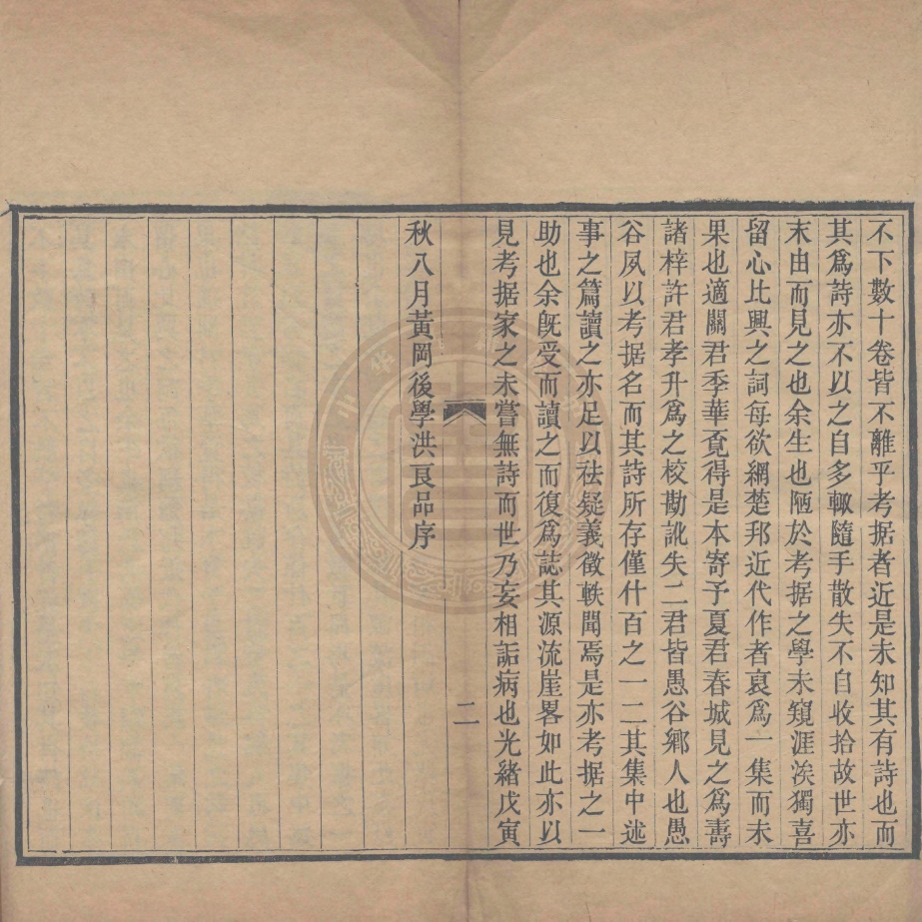 不下數十卷皆不離乎考据者近是未知其有詩也而
其爲詩亦不以之自多輙隨手散失不自收拾故世亦
末由而見之也余生也陋於考据之學未窺涯涘獨喜
留心比興之詞每欲網楚邦近代作者裒爲一集而未
果也適關君季華覔得是本寄予夏君春城見之爲壽
諸梓許君孝升爲之校勘訛失二君皆愚谷鄉人也愚
谷夙以考据名而其詩所存僅什百之一二其集中述
事之篇讀之亦足以祛疑義徵軼聞焉是亦考据之一
助也余旣受而讀之而復爲誌其源流崖畧如此亦以
見考据家之未嘗無詩而世乃妄相詬病也光緒戊寅
二
秋八月黃岡後學洪良品序